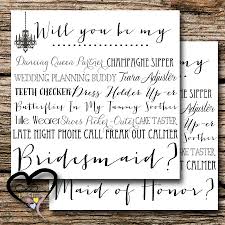 Will you be my
Dancing Queen Partner CHAMPAGNE SIPPER
WEDDING PLANNING BUDDY Tiara Adjuster
TEETH CHECKER Dress Holder Up-er
Butterflies In My Tummy Soother
Blue Wearer Shoes Picker-Outer CAKE TASTER
LATE NIGHT PHONE CALL FREAK OUT CALMER
Bridesmaid?
Maid of Honor?